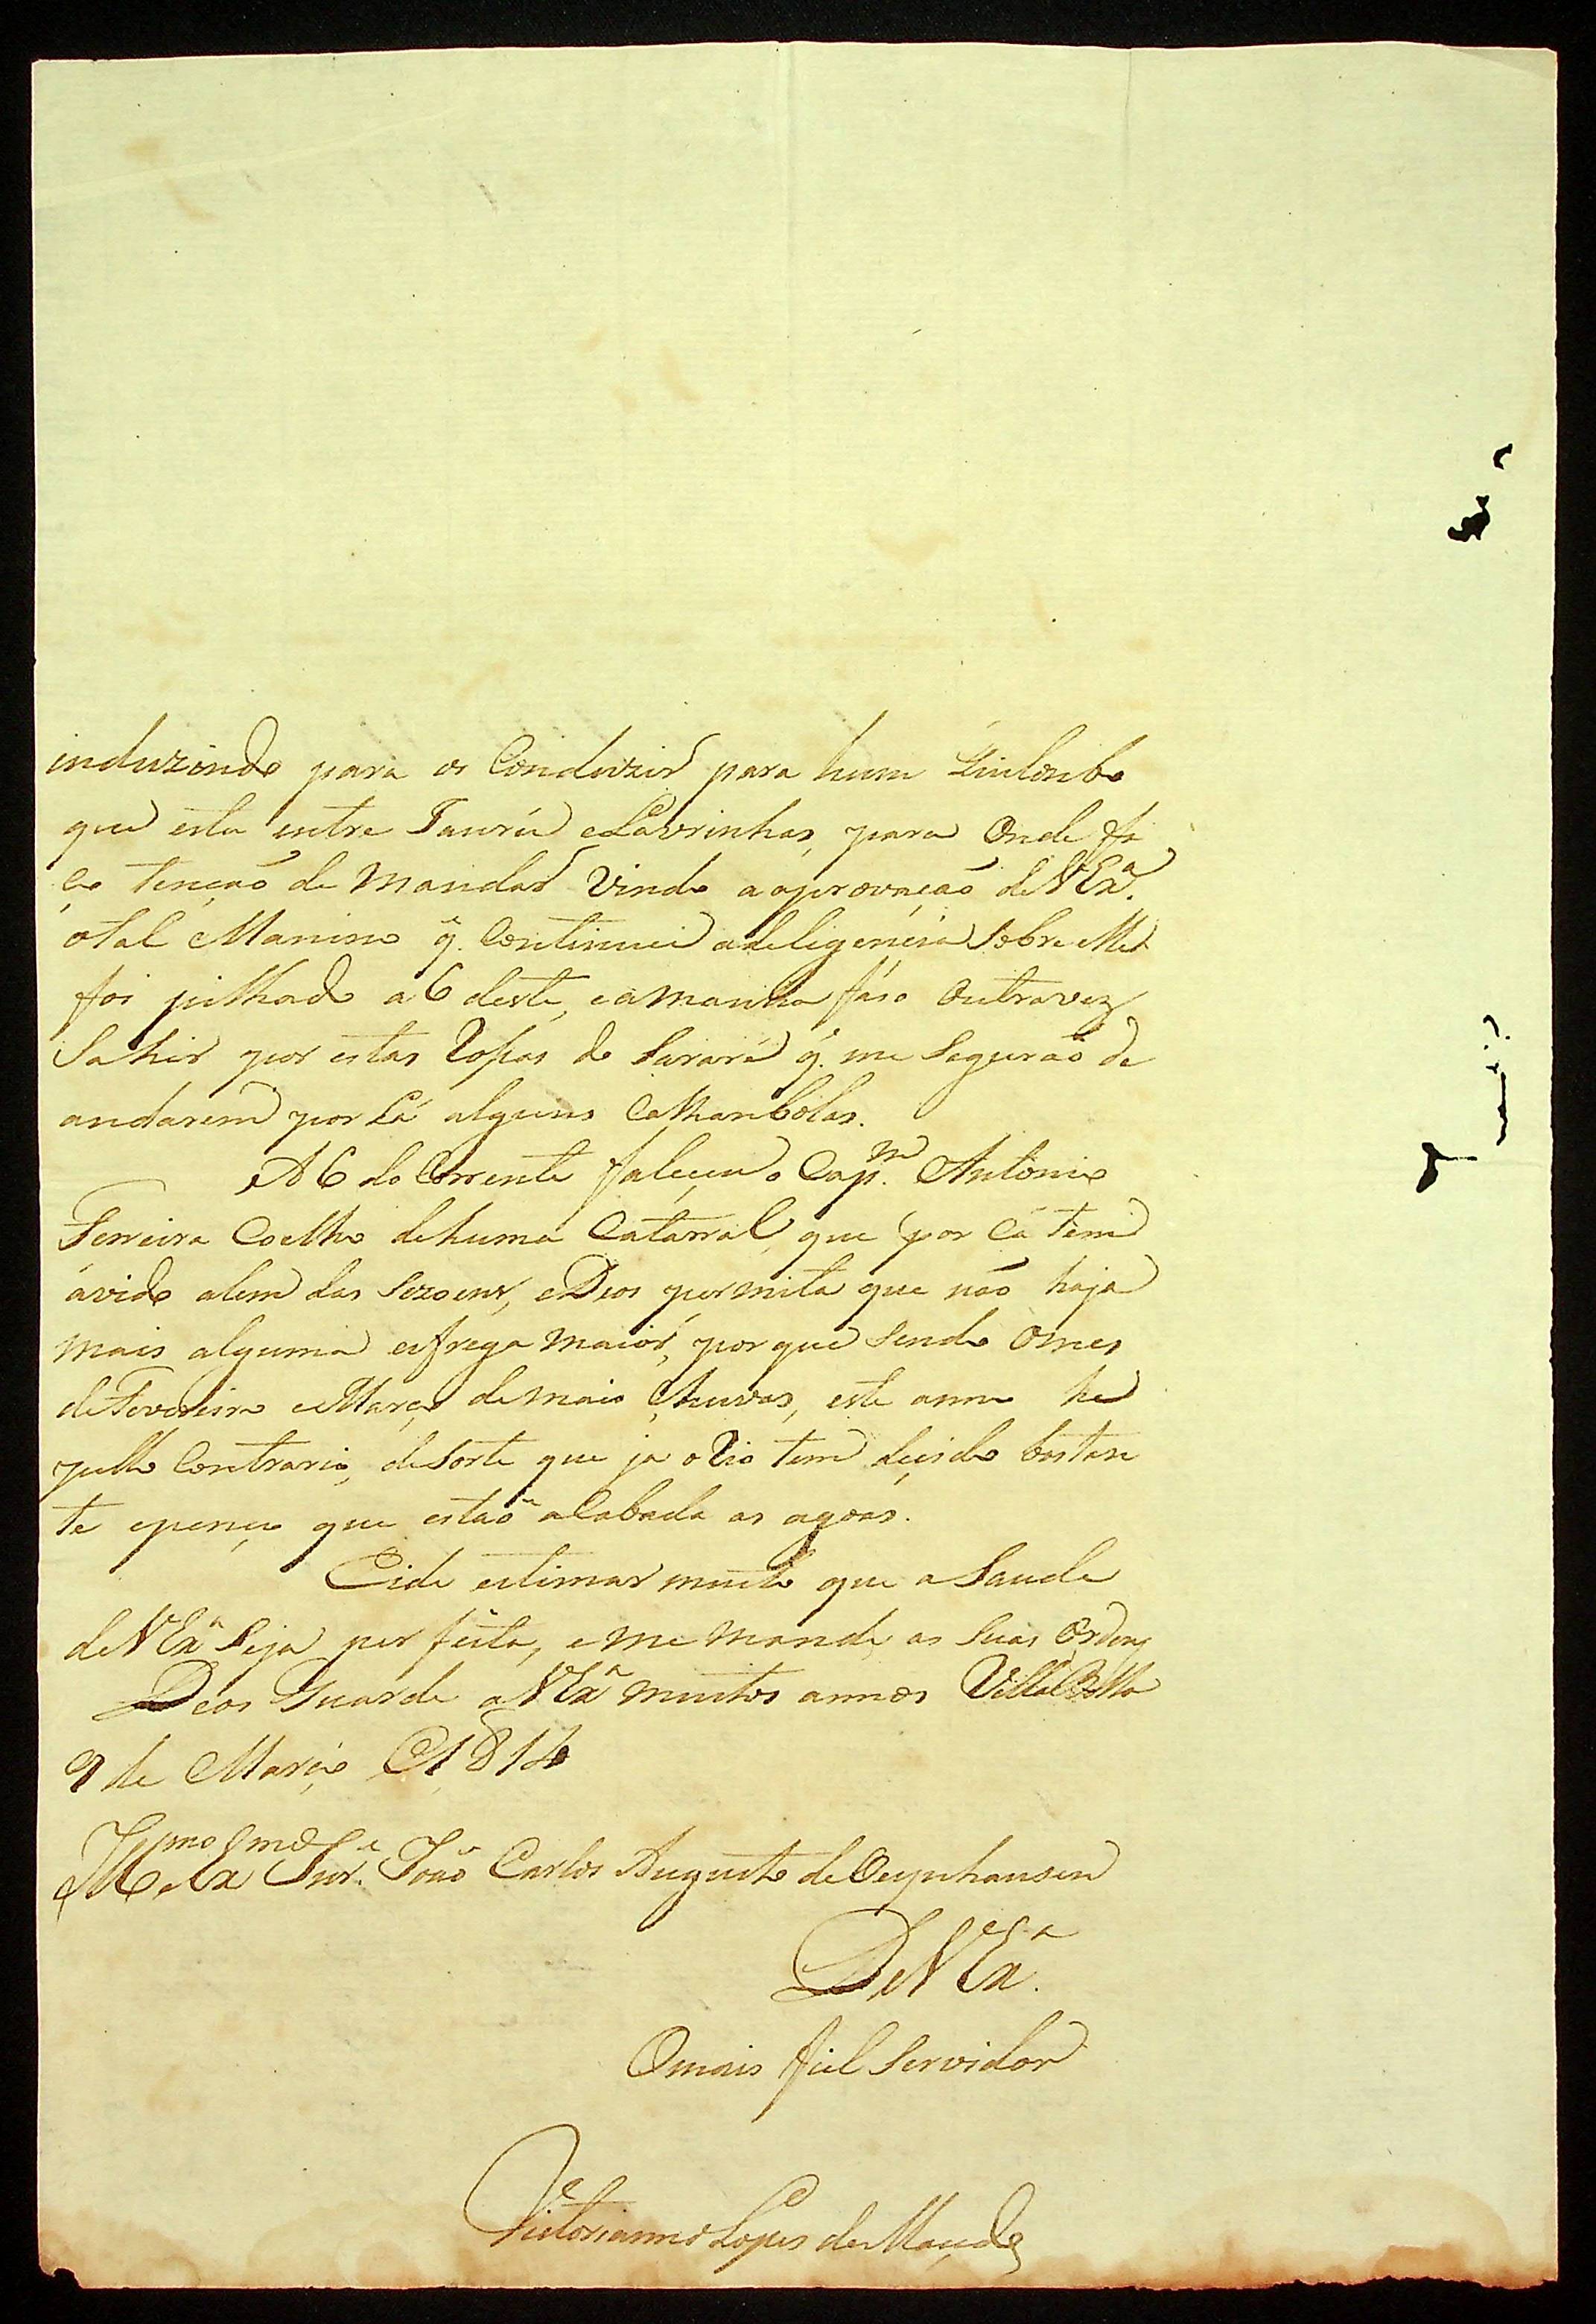 induzindo para os Conduzir para hum Quilonbo
que esta entre Jaurú e Lavrinhas, para onde fa
ço tenção de mandar vindo a aprovação de VEx.ª
o tal Manino q̃. Continuei a deligencia sobre elle
foi pilhado a 6 deste, e amanha faso outra vez
Sahir por estas Rossas do Sararé q̃. me Segurão de
andarem por Lá alguns Calhanbolas.
A 6 do Corrente faleçeu o Cap.m Antonio
Ferreira Coelho de huma Catarral, que por Cá tem
avido alem das Sezoens, e Deos permita que não haja
mais alguma esfrega maior, por que Sendo o mes
de Fevereiro e Março de mais Chuvas, este anno he
pello Contrario, de Sorte que ja o Rio tem deçido bastan
te e penço que estão aCabada as agoas.
Eide estimar muito que a Saude
de VEx.ª Seja perfeita, e me mande as Suas Ordens
Deos Guarde a VEx.ª muitos annos Villa Bella
9 de Março de 1814
Ill.mo e Ex.mo Snr. João Carlos Augusto de Oeynhausen
De VEx.ª
O mais fiel Servidor
Victorianno Lopes de Maçedo